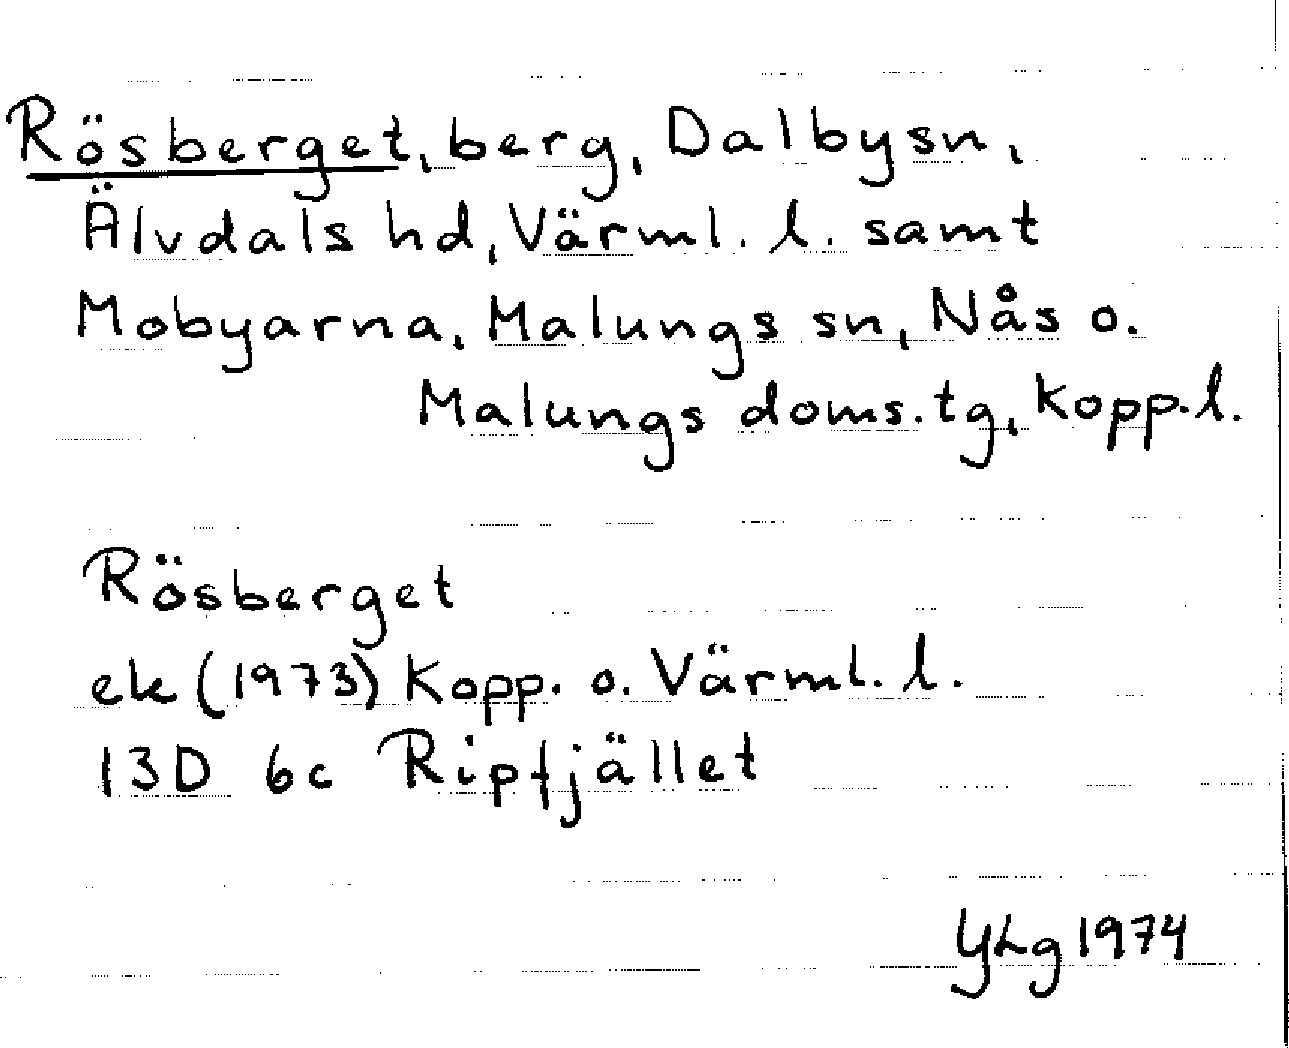 Rösberget, berg, Dalby sn,
Älvdals hd, Värml. l. samt
Mobyarna, Malungs sn, Nås o.
Malungs doms.tg, Kopp. l.
Rösberget
ek (1973) Kopp. o. Värml. l.
13D 6c Ripfjället
YLg 1974